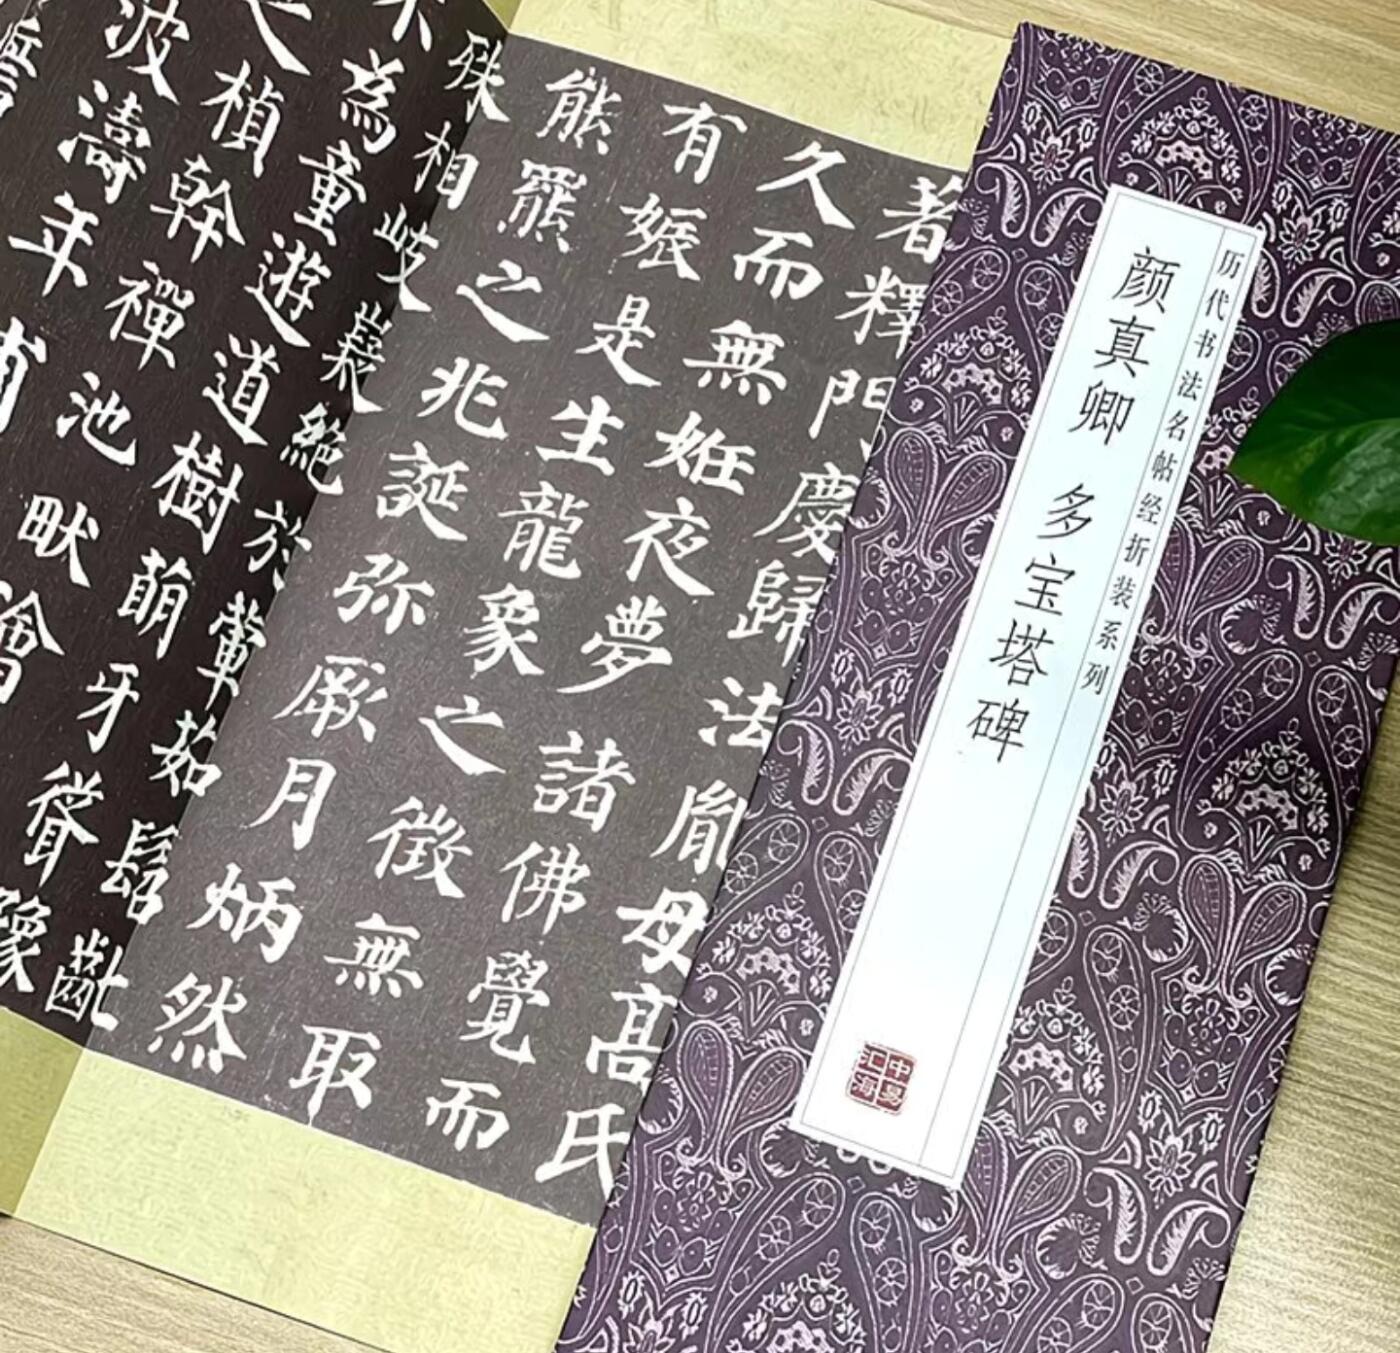 颜真卿 多宝塔碑
历代书法名帖经折装系列
中易汇海
著釋門慶歸法胤母髙氏
久而無姙夜夢諸佛覺而
有娠是生龍象之徵無取
熊羆之兆誕弥厥月炳然
殊相岐嶷絕於葷茹髫齔
不為童遊道樹萌牙聳豫
之楨幹禪池畎澮
波濤年甫